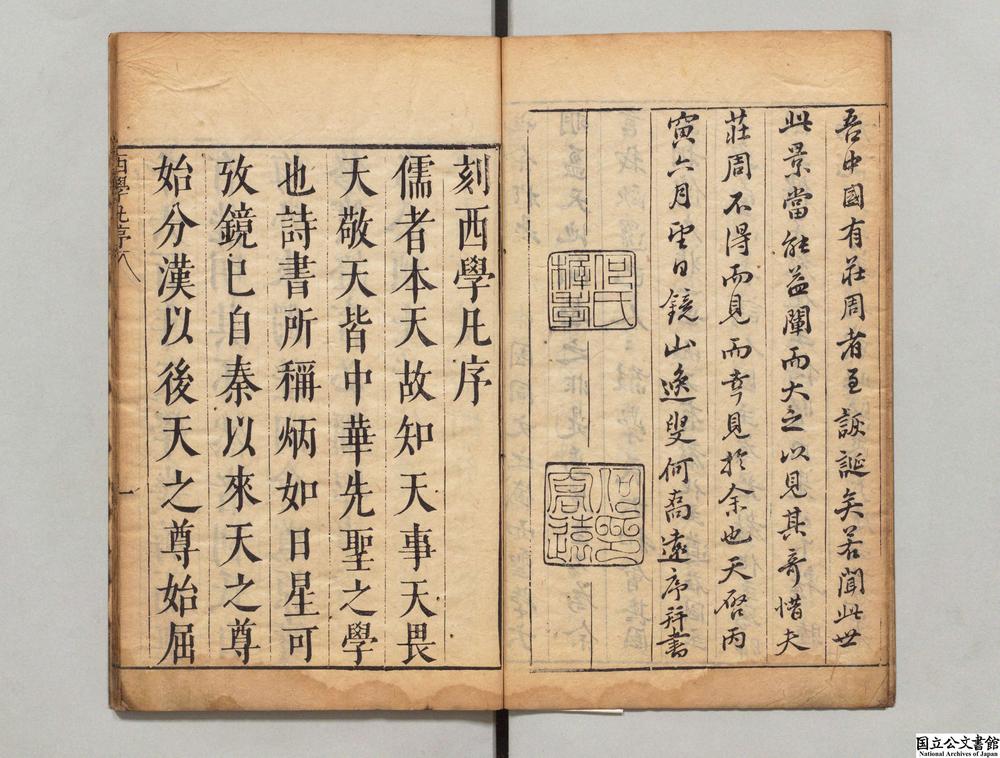 吾中國有莊周者至詼誕矣若聞此世
此景當能益闡而大之以見其奇惜夫
莊周不得而見而幸見於余也天啓丙
寅六月望日鏡山逸叟何喬遠序并書
何氏穉孝
何喬遠
刻西學凡序
儒者本天故知天事天畏
天敬天皆中華先聖之學
也詩書所稱炳如日星可
攷鏡已自秦以來天之尊
始分漢以後天之尊始屈
西學凡序
一
国立公文書館
National Archives of Japan